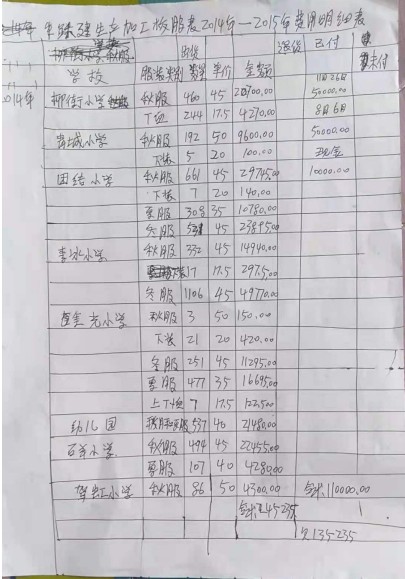 生产加工校服表2014年—2015年费用明细表
学校 服装类别 数量 单价 金额 退货 已付 未付
2014年 柳街小学 秋服 460 45 20700.00 11月26日 50000.00
T恤 244 17.5 4270.00 8月6日
青城小学 秋服 192 50 9600.00 50000.00
下装 5 20 100.00 现金
团结小学 秋服 661 45 29745.00 10000.00
下装 7 20 140.00
夏服 308 35 10780.00
冬服 45 23895.00
李冰小学 秋服 332 45 14940.00
17 17.5 297.5
冬服 1106 45 49770.00
小学 秋服 3 50 150.00
下装 21 20 420.00
冬服 251 45 11295.00
夏服 477 35 16695.00
7 17.5 122.500
幼儿园 537 40 21480.00
石羊小学 秋服 494 45 22455.00
夏服 107 40 4280.00
小学 秋服 86 50 4300.00 110000.00
135235